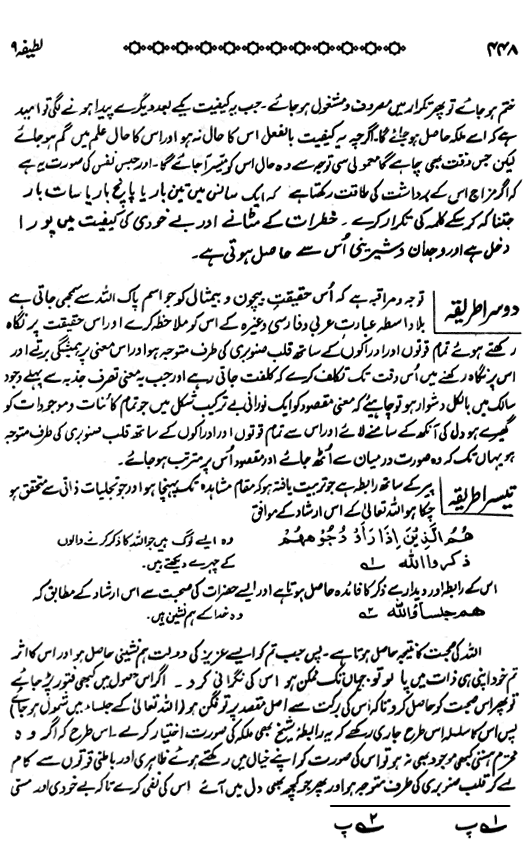 ۴۴۸ لطیفہ ۹
ختم ہو جائے تو پھر تکرار میں مصروف و مشغول ہو جائے۔ جب یہ کیفیت یکے بعد دیگرے پیدا ہونے لگی تو امید
ہے کہ اسے ملکہ حاصل ہو جائے گا۔ اگرچہ یہ کیفیت بالفعل اس کا حال نہ ہو اور اس کا حال علم میں گم ہو جائے
لیکن جس وقت بھی چاہے گا معمولی سی توجہ سے وہ حال اس کو میسر آ جائے گا۔ اور حبس نفس کی صورت یہ ہے
کہ اگر مزاج اس کے برداشت کی طاقت رکھتا ہے کہ ایک سانس میں تین بار یا پانچ بار یا سات بار
جتنا کہ کر سکے کلمہ کی تکرار کرے۔ خطرات کے مٹانے اور بے خودی کی کیفیت میں پورا
دخل ہے اور وجدان و شیرینی اُس سے حاصل ہوتی ہے۔
دوسرا طریقہ توجہ و مراقبہ ہے کہ اُس حقیقتِ بیچون و بیمثال کو جو اسم پاک اللہ سے سمجھی جاتی ہے
بلا واسطہ عبارت عربی و فارسی وغیرہ کے اس کو ملاحظہ کرے اور اس حقیقت پر نگاہ
رکھتے ہوئے تمام قوتوں اور ادراکوں کے ساتھ قلب صنوبری کی طرف متوجہ ہو اور اس معنی پر ہمیشگی برتے اور
اس پر نگاہ رکھنے میں اُس وقت تک تکلف کرے کہ کلفت جاتی رہے اور جب یہ معنی تصرف جذبہ سے پہلے وجود
سالک میں بالکل دشوار ہو تو چاہیئے کہ معنی مقصود کو ایک نورانی بے ترکیب شکل میں جو تمام کائنات و موجودات کو
گھیرے ہو دل کی آنکھ کے سامنے لائے اور اس سے تمام قوتوں اور ادراکوں کے ساتھ قلب صنوبری کی طرف متوجہ
ہو یہاں تک کہ وہ صورت درمیان سے اُٹھ جائے اور مقصود اُس پر مترتب ہو جائے۔
تیسرا طریقہ پیر کے ساتھ رابطہ ہے جو تربیت یافتہ ہو کہ مقام مشاہدہ تک پہنچا ہو اور جو تجلیات ذاتی سے متحقق ہو
چکا ہو اللہ تعالیٰ کے اس ارشاد کے موافق
ھُمُ الَّذِیْنَ اِذَا رَأَوْ وُجُوْھِھِمْ وہ ایسے لوگ ہیں جو اللہ کا ذکر کرنے والوں
ذکروا اللہ ؎۱ کے چہرے دیکھتے ہیں۔
اس کے رابطہ اور دیدار سے ذکر کا فائدہ حاصل ہوتا ہے اور ایسے حضرات کی صحبت سے اس ارشاد کے مطابق کہ
ھم جلساؤ اللہ ؎۲ وہ خدا کے ہم نشین ہیں۔
اللہ کی صحبت کا نتیجہ حاصل ہوتا ہے۔ پس جب تم کو ایسے عزیز کی دولت ہم نشینی حاصل ہو اور اس کا اثر
تم خود اپنی ہی ذات میں پاؤ تو جہاں تک ممکن ہو اس کی نگرانی کرو۔ اگر اس حصول میں کبھی فتور پڑ جائے
تو پھر اس صحبت کو حاصل کرو تاکہ اس کی برکت سے اصل مقصد پر تو فگن ہو (اللہ تعالیٰ کے جلساء میں شمول ہو جائے)
پس اس کا سلسلہ اس طرح جاری رکھے کہ یہ رابطۂ شیخ بھی ملکہ کی صورت اختیار کرے۔ اس طرح کہ اگر وہ
محترم ہستی کبھی موجود بھی نہ ہو تو اس کی صورت کو اپنے خیال میں رکھتے ہوئے ظاہری اور باطنی قوتوں سے کام
لے کر قلب صنوبری کی طرف متوجہ ہو اور پھر جو کچھ بھی دل میں آئے اس کی نفی کرے تاکہ بے خودی اور مستی
؎۱ پ ؎۲ پ